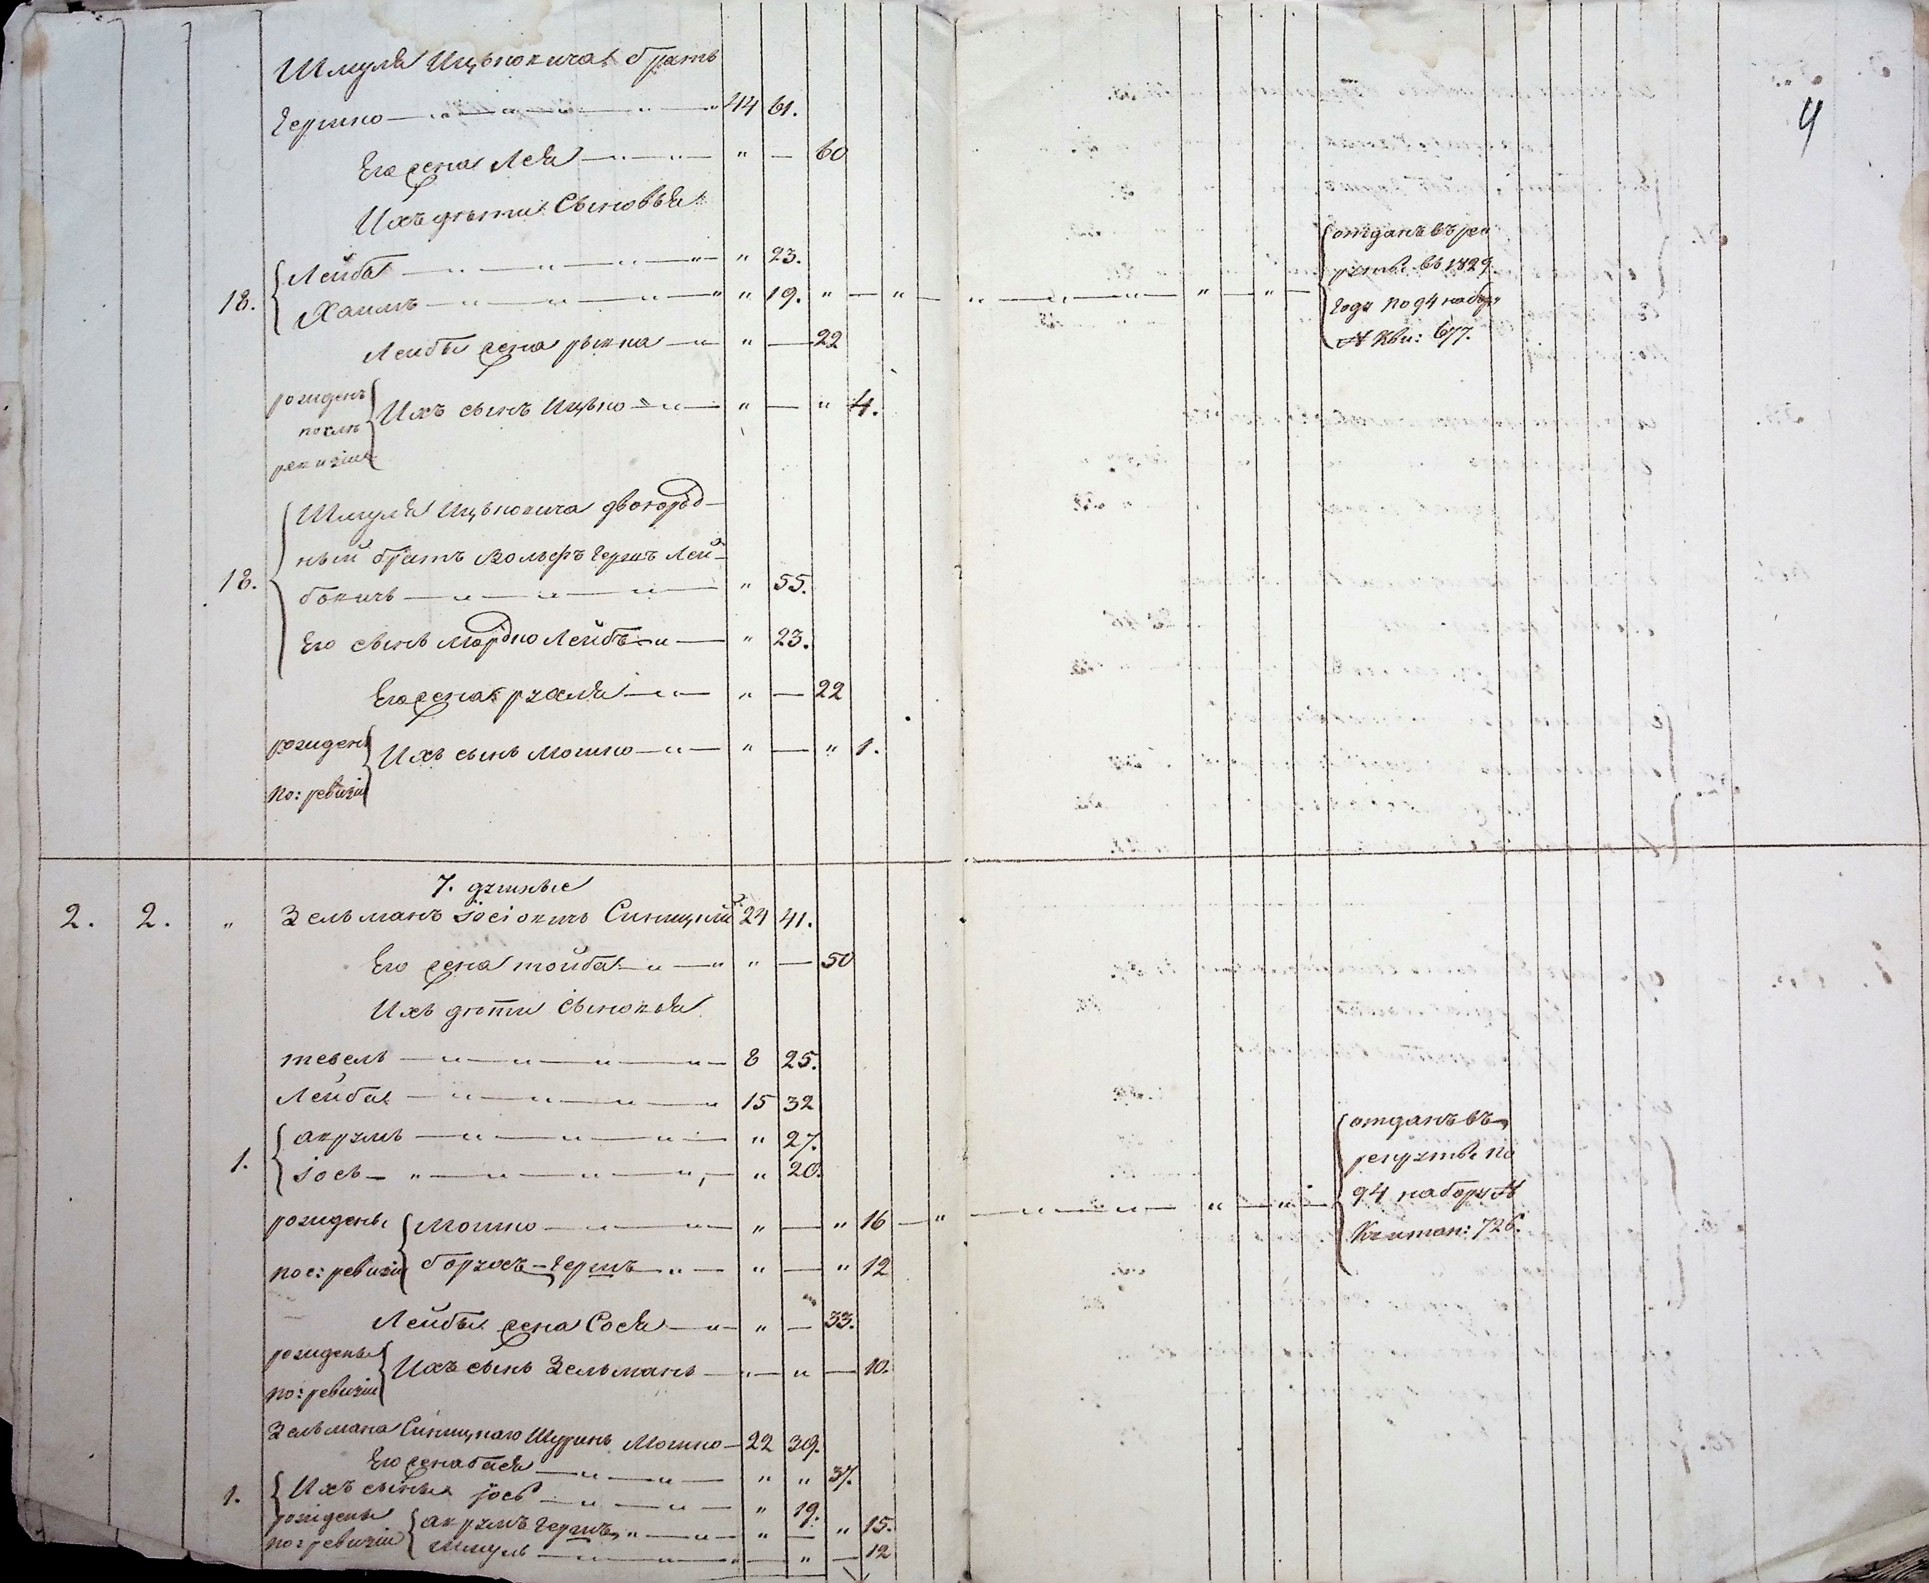 4
Шмуля Ицьковича братъ
Гершко — " — " — " — " 44 61.
Его жена Лея — " — " — " — 60
Ихъ дѣти Сыновья
Лейба — " — " — " — " " 23.
18. Хаимъ — " — " — " — " " 19. " — " — " — " — " — " — " —
отданъ въ рек
рутъ въ 1829
Году по 94 набору
№ Кви: 677.
Лейбы жена рывка — " — " — 22
рожденъ
послѣ
ревизіи
Ихъ сынъ Ицько — " — " — " 4.
Шмуля Ицьковича двоюрод-
ный братъ Вольфъ Гершъ Лей-
18. бовичъ — " — " — " — " 55.
Его сынъ Мордко Лейбъ — " — " 23.
Его жена рухля — " — " — 22
рожденъ
по: ревизіи
Ихъ сынъ Мошко — " — " — " 1.
7. душные
2. 2. " Зельманъ Іосіовичъ Синицкій 24 41.
Его жена тойба — " — " " — 50
Ихъ дѣти Сыновья
тевель — " — " — " — " — 8 25.
Лейба — " — " — " — " 15 32
аврумъ — " — " — " — " 27.
1. Іось — " — " — " — " — " 20.
рожденъ
пос: ревизіи
Мошко — " — " — " — " 16 — " — " — " — " — " —
борухъ-Гершъ — " — " — " 12
отданъ въ
рекруты по
94 набору №
Квитан: 726.
Лейбы жена Сося — " — " — 33.
рожденъ
по: ревизіи
Ихъ сынъ Зельманъ — " — " — 10.
Зельмана Синицкаго Шуринъ Мошко — 22 39.
Его жена бася — " — " — " " 37.
1. Ихъ сынъ Іось — " — " — " 19.
рожденъ
по: ревизіи
аврумъ Гершъ — " — " — " — " 15.
Шмуль — " — " — " — " — 12